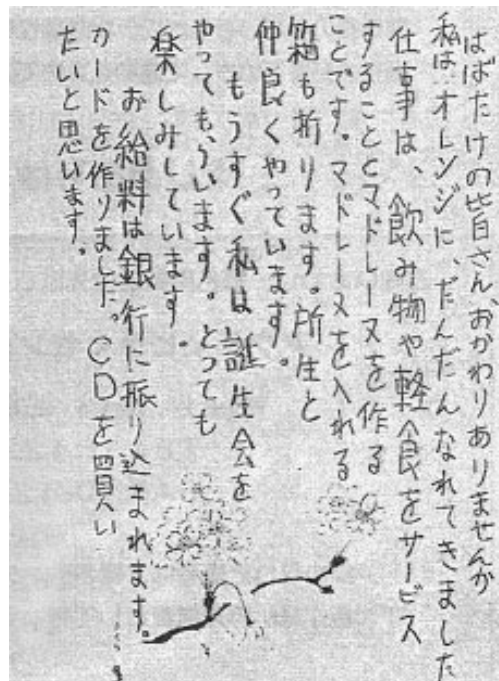 はばたけの皆さん、おかわりありませんか
私は、オレンジに、だんだんなれてきました
仕事は、飲み物や軽食をサービス
することとマドレーヌを作る
ことです。マドレーヌを入れる
箱も折ります。所生と
仲良くやっています。
もうすぐ私は誕生会を
やってもらいます。とっても
楽しみしています。
お給料は銀行に振り込まれます。
カードを作りました。CDを買い
たいと思います。